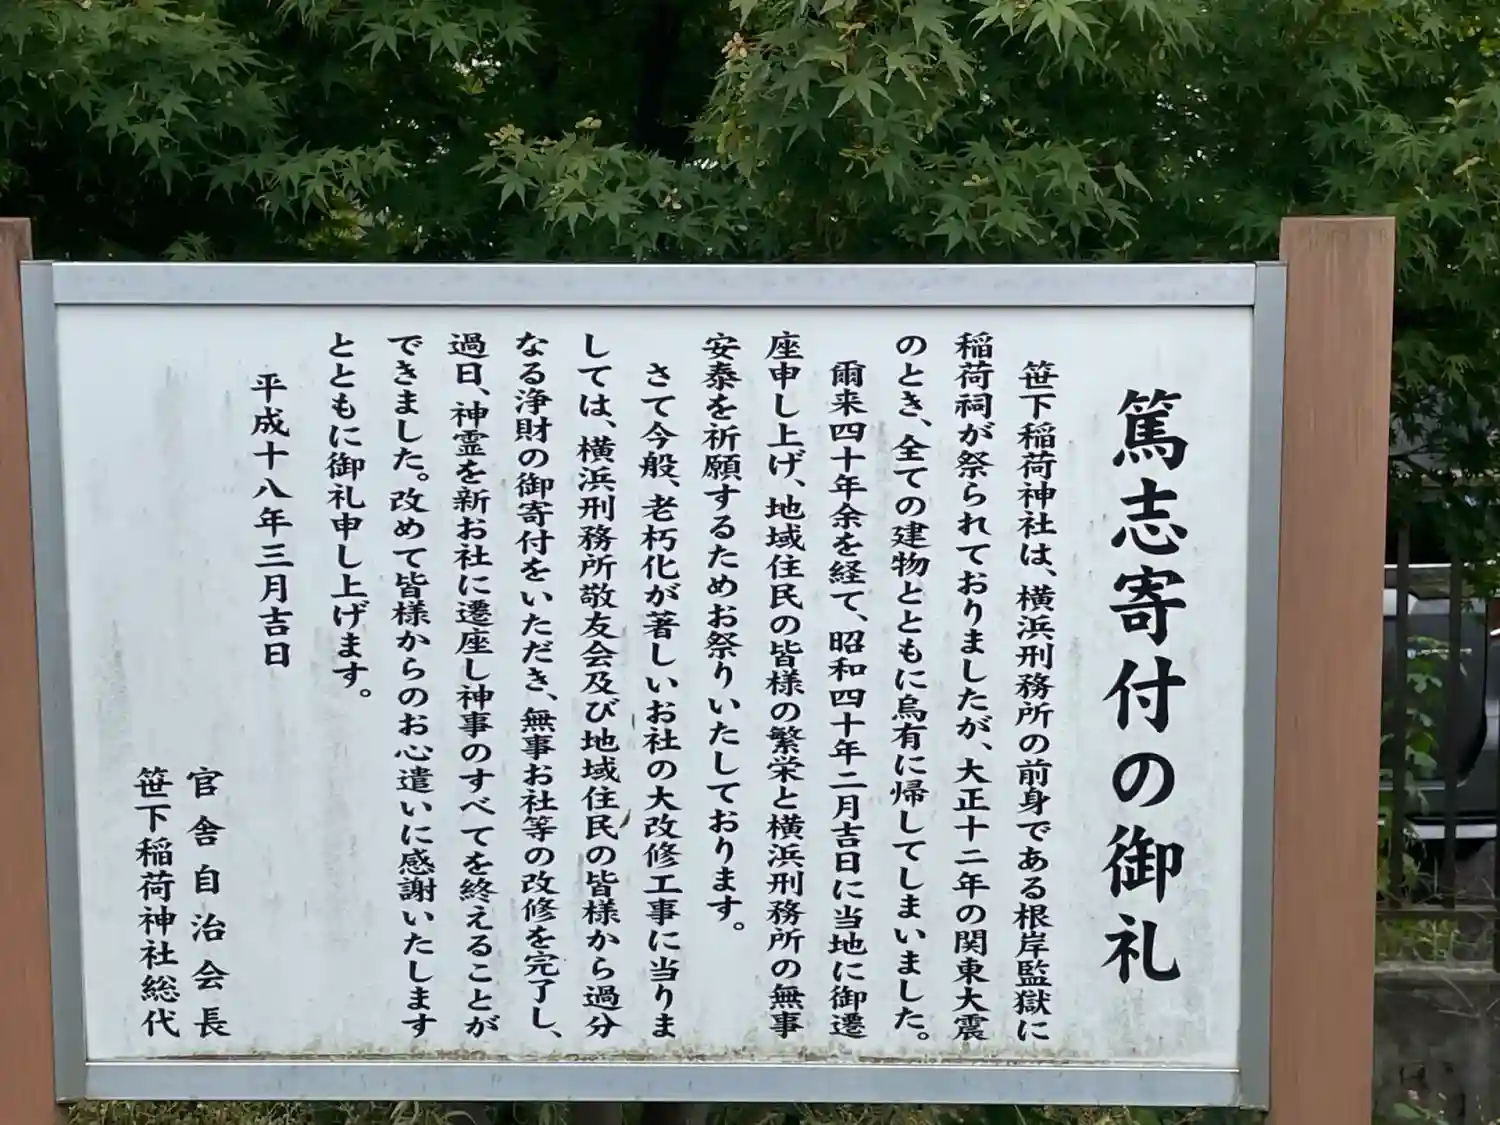 篤志寄付の御礼
笹下稲荷神社は、横浜刑務所の前身である根岸監獄に
稲荷祠が祭られておりましたが、大正十二年の関東大震
のとき、全ての建物とともに烏有に帰してしまいました。
爾来四十年余を経て、昭和四十年二月吉日に当地に御遷
座申し上げ、地域住民の皆様の繁栄と横浜刑務所の無事
安泰を祈願するためお祭りいたしております。
さて今般、老朽化が著しいお社の大改修工事に当りま
しては、横浜刑務所敬友会及び地域住民の皆様から過分
なる浄財の御寄付をいただき、無事お社等の改修を完了し、
過日、神霊を新お社に遷座し神事のすべてを終えることが
できました。改めて皆様からのお心遣いに感謝いたします
とともに御礼申し上げます。
平成十八年三月吉日
官舎自治会長
笹下稲荷神社総代